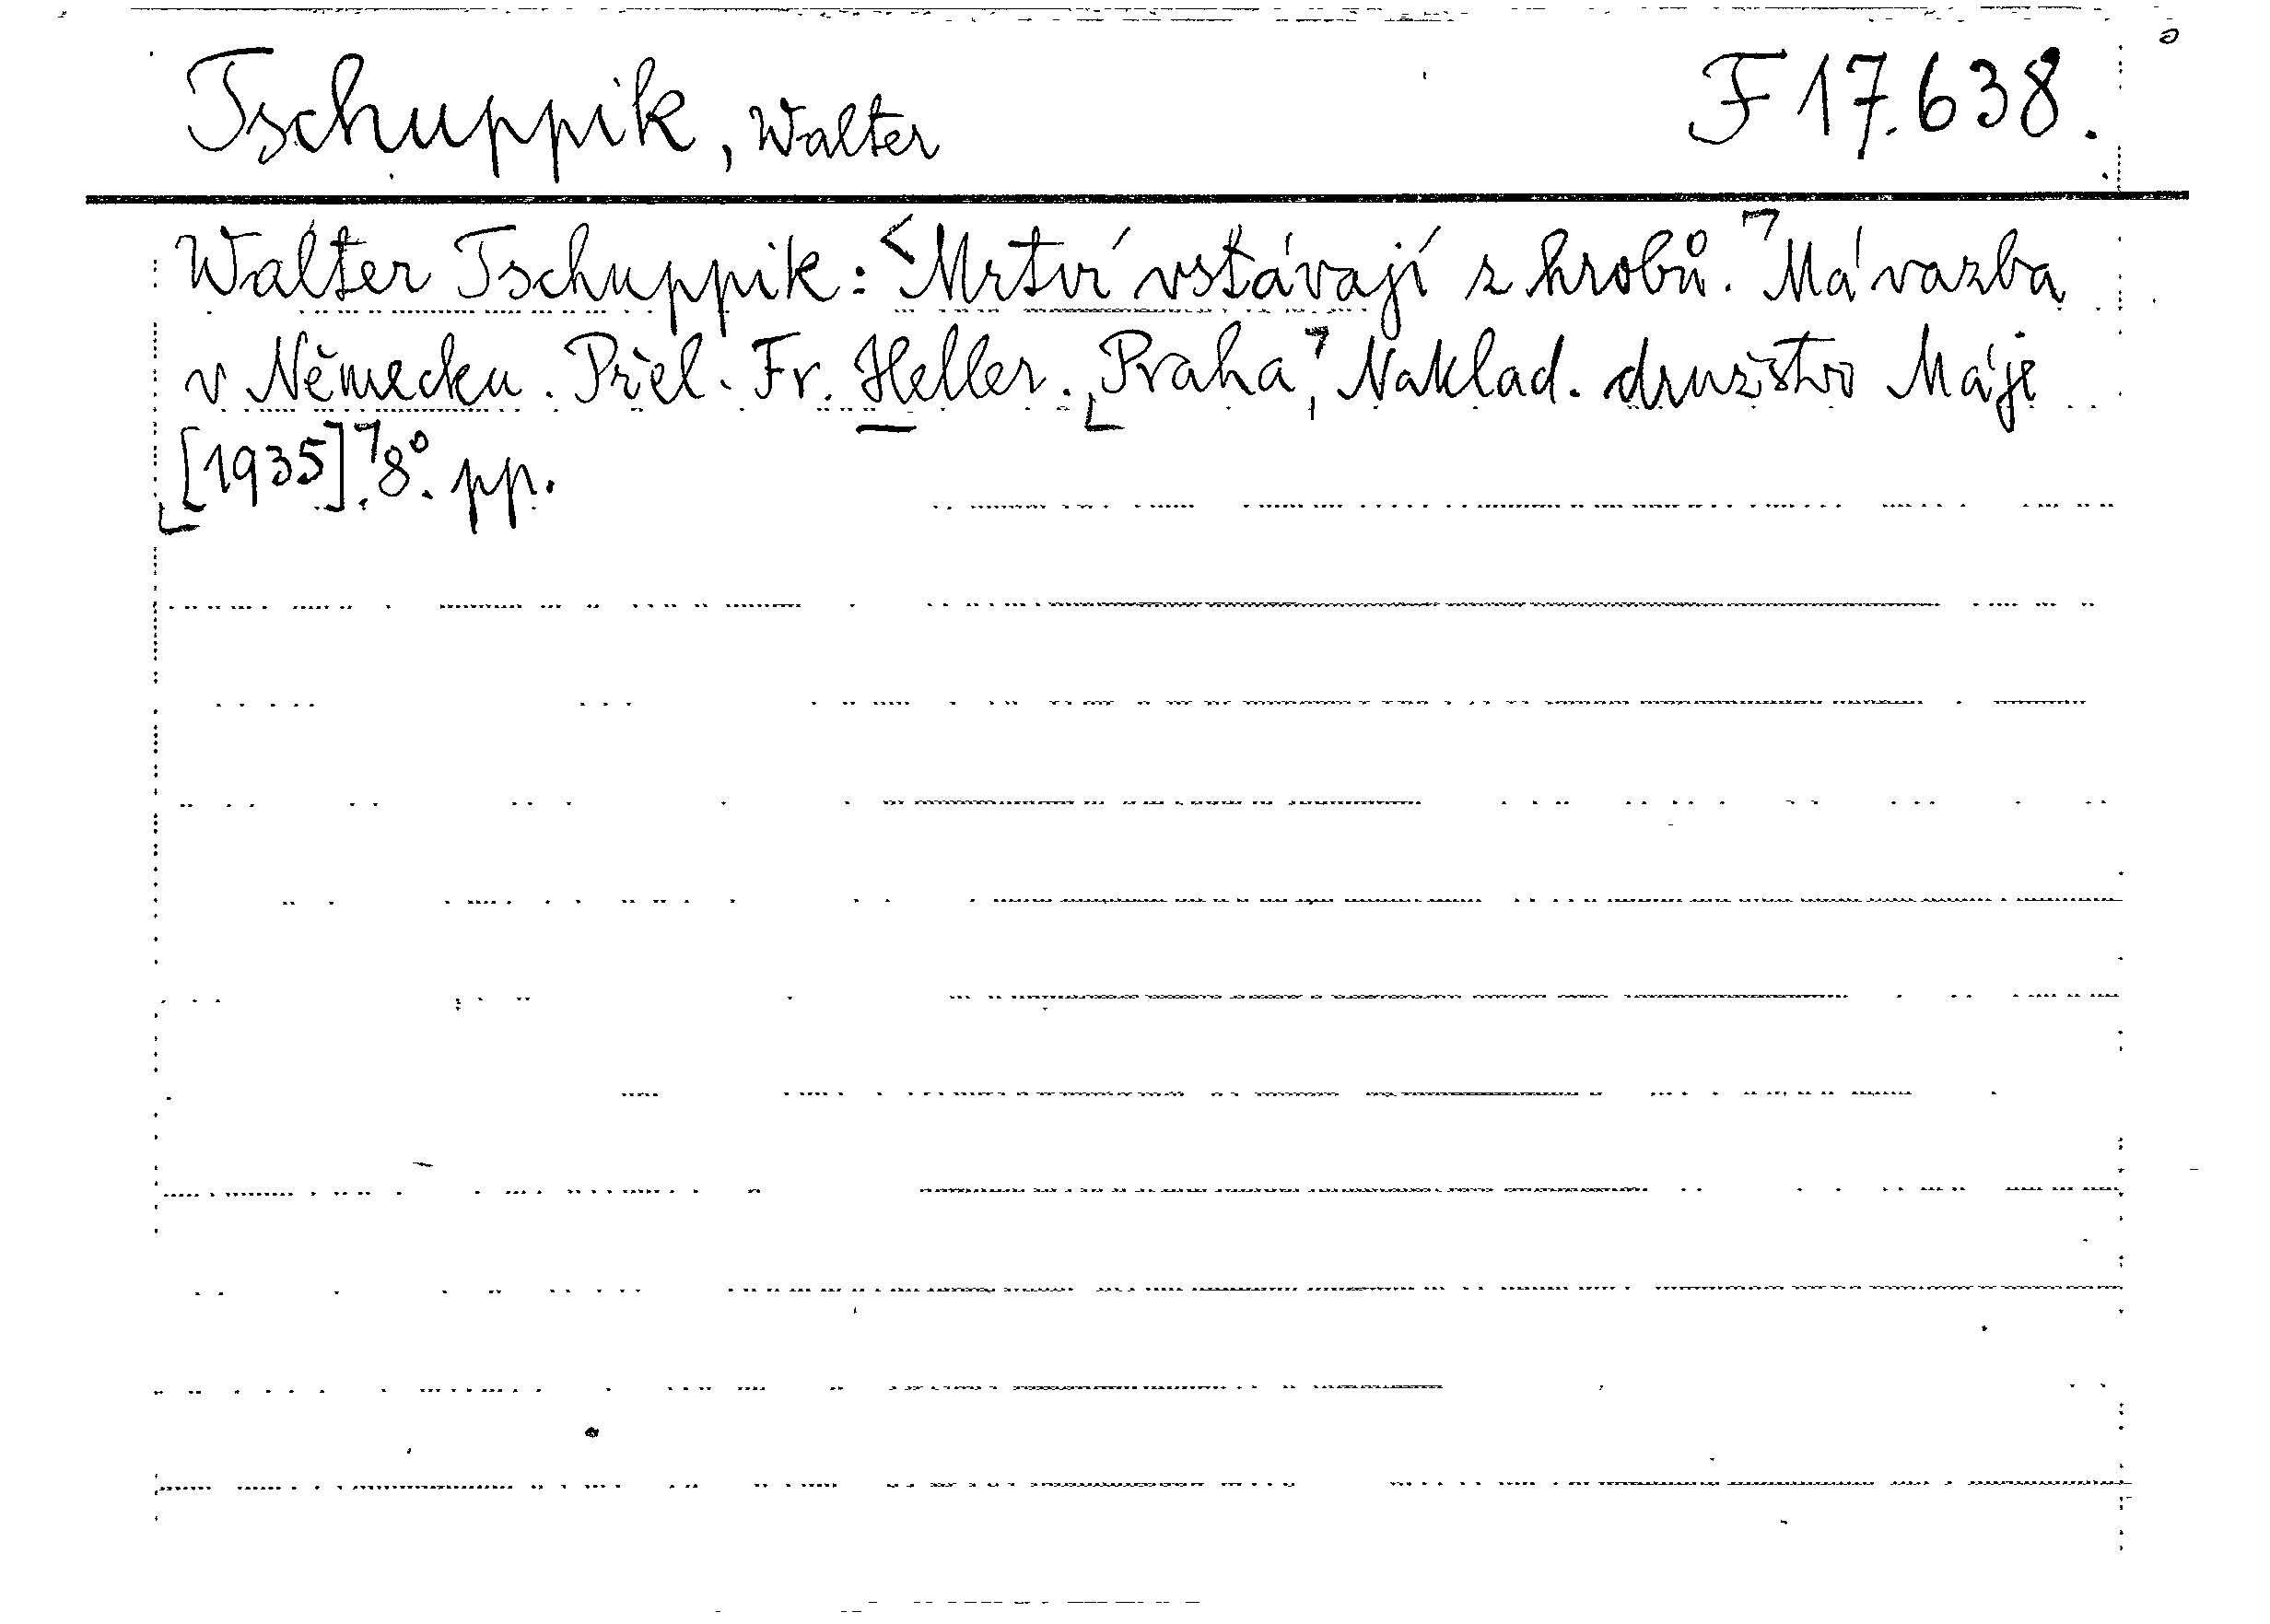 Tschuppik, Walter F 17.638.
Walter Tschuppik: Mrtví vstávají z hrobů. Má vazba
v Německu. Přel. Fr. Heller. Praha, Naklad. družstvo Máje
[1935]. 8°. pp.